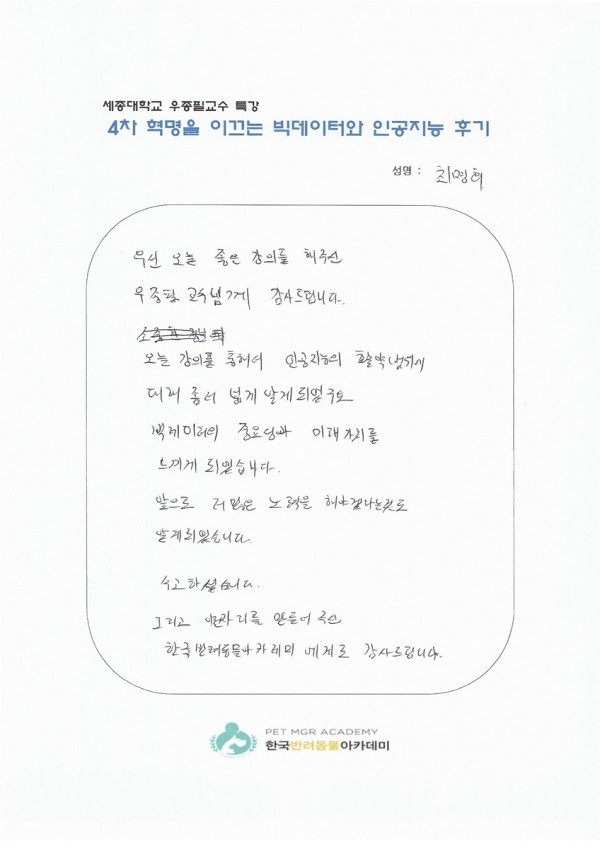 세종대학교 우종필교수 특강
4차 혁명을 이끄는 빅데이터와 인공지능 후기
성명 : 최명희
우선 오늘 좋은 강의를 해주신
우종필 교수님께 감사드립니다.
오늘 강의를 통하여 인공지능의 활약
대해 좀더 넓게 알게되었구요
빅데이터의 중요성과 미래가치를
느끼게 되었습니다.
앞으로 더 많은 노력을 해야겠다는것도
알게되었습니다.
수고하셨습니다.
그리고 이자리를 만들어 주신
한국반려동물아카데미 에게도 감사드립니다.
PET MGR ACADEMY
한국반려동물아카데미